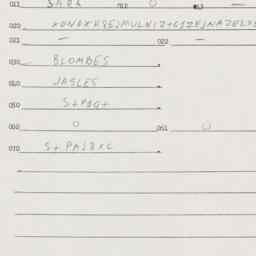 011 SARA 012 O 013 —
020
021 — 022 —
030 BLOMBES
040 JASLES
050 S+P1G+
060 O 061 O
070 S+PA13XL